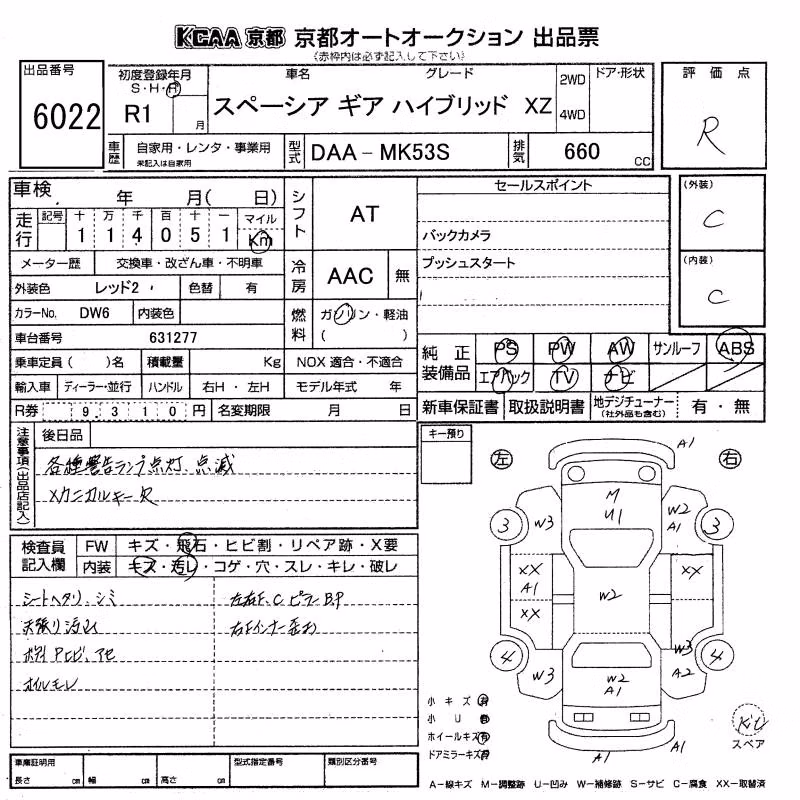 KCAA 京都 京都オートオークション 出品票
(赤枠内は必ず記入して下さい)
出品番号 6022
初度登録年月 S・H・R R1 月
車名 グレード
スペーシア ギア ハイブリッド XZ
2WD
4WD
ドア・形状
評価点
R
車歴 自家用・レンタ・事業用
未記入は自家用
型式 DAA-MK53S
排気 660 cc
車検 年 月( 日)
走行 記号 十 万 千 百 十 一 マイル
1 1 4 0 5 1 Km
シフト AT
冷房 AAC 無
セールスポイント
バックカメラ
プッシュスタート
(外装)
C
(内装)
C
メーター歴 交換車・改ざん車・不明車
外装色 レッド2 色替 有
カラーNo. DW6 内装色
燃料 ガソリン・軽油
( )
車台番号 631277
乗車定員( )名 積載量 Kg NOX 適合・不適合
輸入車 ディーラー・並行 ハンドル 右H・左H モデル年式 年
R券 9,310円 名変期限 月 日
純正装備品 PS PW AW サンルーフ ABS
エアバック TV ナビ
新車保証書 取扱説明書 地デジチューナー
(社外品も含む)
有・無
注意事項(出品店記入)
後日品
各種警告ランプ点灯、点滅
メカニカルキー欠
検査員記入欄
FW キズ・飛石・ヒビ割・リペア跡・X要
内装 キズ・汚レ・コゲ・穴・スレ・キレ・破レ
シートヘタリ、シミ
天張り汚れ
ボディPヒビ、アセ
オイルモレ
左右F、CピラーB.P
右Fインナー歪み
キー預り
左
右
A1
M
U1
3
W3
W2
A1
3
XX
A1
XX
XX
W2
4
W3
W2
A1
W3
A2
4
A1
A1
小キズ 有
小U 有
ホイールキズ 有
ドアミラーキズ 有
スペア
車庫証明用
長さ cm 幅 cm 高さ cm
型式指定番号
類別区分番号
A-線キズ M-調整跡 U-凹み W-補修跡 S-サビ C-腐食 XX-取替済